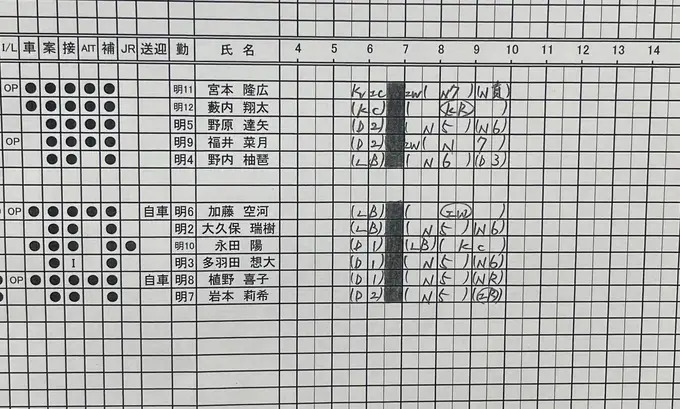 I/L 車 案 接 AIT 補 JR 送迎 勤 氏 名 4 5 6 7 8 9 10 11 12 13 14
OP ● ● ● ● ● 明11 宮本 隆広 (N7)
● ● ● ● ● 明12 藪内 翔太 (KC) (KB)
● ● ● ● 明5 野原 達矢 (D2) (N5) (N6)
OP ● ● ● ● 明9 福井 菜月 (D2) (N7)
● ● ● 明4 野内 柚琶 (LB) (N6) (D3)
OP ● ● ● ● ● 自車 明6 加藤 空河 (LB) (IW)
● ● ● 明2 大久保 瑞樹 (LB) (N5) (N6)
● ● ● ● ● 明10 永田 陽 (D1) (LB) (KC)
● I ● 明3 多羽田 想大 (D1) (N5) (N6)
OP ● ● ● ● ● 自車 明8 植野 喜子 (D1) (N5) (NR)
● ● ● 明7 岩本 莉希 (D2) (N5) (IB)